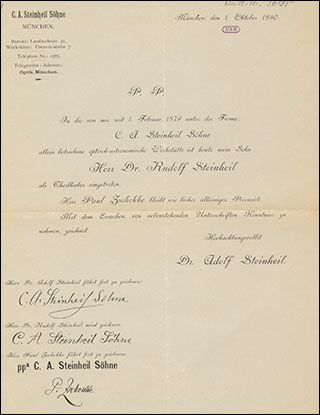 C. A. Steinheil Söhne
MÜNCHEN.
Bureau: Landwehrstr. 31.
Werkstätte: Theresienhöhe 7.
Telephon No.
Telegramm-Adresse:
Optik München.
München, den 1. Oktober 1890.
P. P.
In die von mir seit 1. Februar 1879 unter der Firma:
C. A. Steinheil Söhne
allein betriebene optisch-astronomische Werkstätte ist heute mein Sohn
Herr Dr. Rudolf Steinheil
als Theilhaber eingetreten.
Herr Paul Zschokke bleibt wie bisher alleiniger Procurist.
Mit dem Ersuchen, von nebenstehenden Unterschriften Kenntniss zu
nehmen, zeichnet
Hochachtungsvollst
Dr. Adolf Steinheil.
Herr Dr. Adolf Steinheil fährt fort zu zeichnen:
C. A. Steinheil Söhne
Herr Dr. Rudolf Steinheil wird zeichnen:
C. A. Steinheil Söhne
Herr Paul Zschokke fährt fort zu zeichnen:
ppa C. A. Steinheil Söhne
P. Zschokke